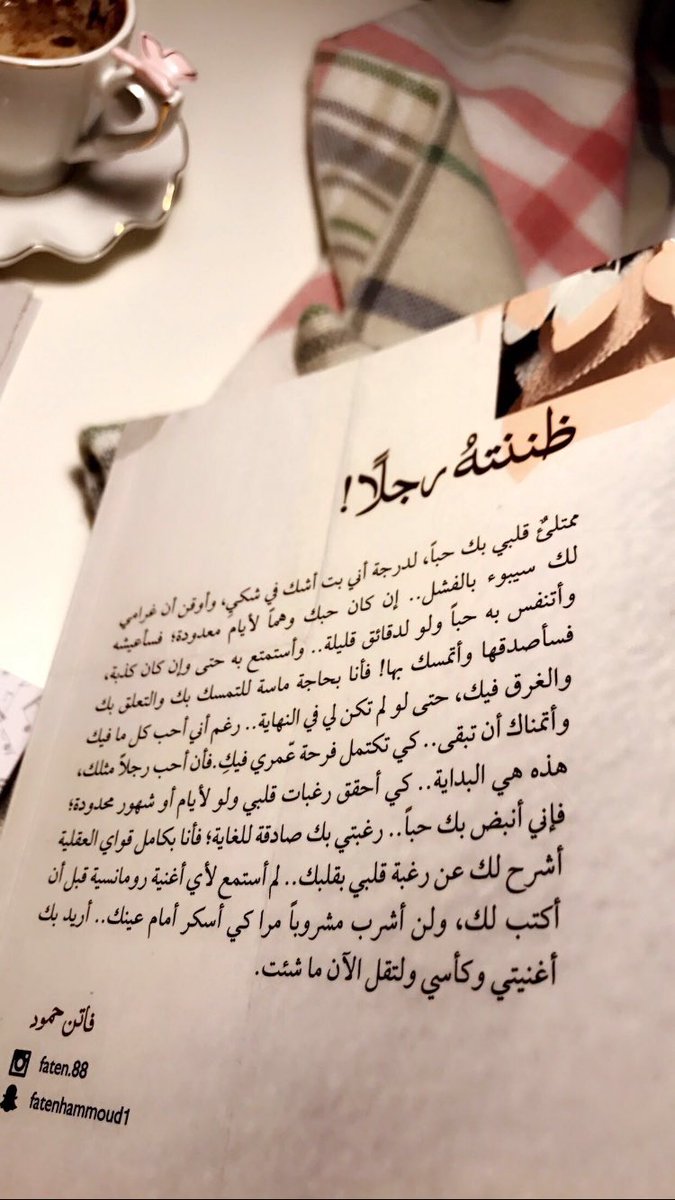 ظننتهُ رجلًا!
ممتلئٌ قلبي بك حباً، لدرجة أني بت أشك في شكي، وأوقن أن غرامي
لك سيبوء بالفشل.. إن كان حبك وهماً لأيام معدودة؛ فسأعيشه
وأتنفس به حباً ولو لدقائق قليلة.. وأستمتع به حتى وإن كان كذبة،
فسأصدقها وأتمسك بها! فأنا بحاجة ماسة للتمسك بك والتعلق بك
والغرق فيك، حتى لو لم تكن لي في النهاية.. رغم أني أحب كل ما فيك
وأتمناك أن تبقى.. كي تكتمل فرحة عّمري فيكِ.فأن أحب رجلاً مثلك،
هذه هي البداية.. كي أحقق رغبات قلبي ولو لأيام أو شهور محدودة؛
فإني أنبض بك حباً.. رغبتي بك صادقة للغاية؛ فأنا بكامل قواي العقلية
أشرح لك عن رغبة قلبي بقلبك.. لم أستمع لأي أغنية رومانسية قبل أن
أكتب لك، ولن أشرب مشروباً مرا كي أسكر أمام عينك.. أريد بك
أغنيتي وكأسي ولتقل الآن ما شئت.
فاتن حمود
faten.88
fatenhammoud1